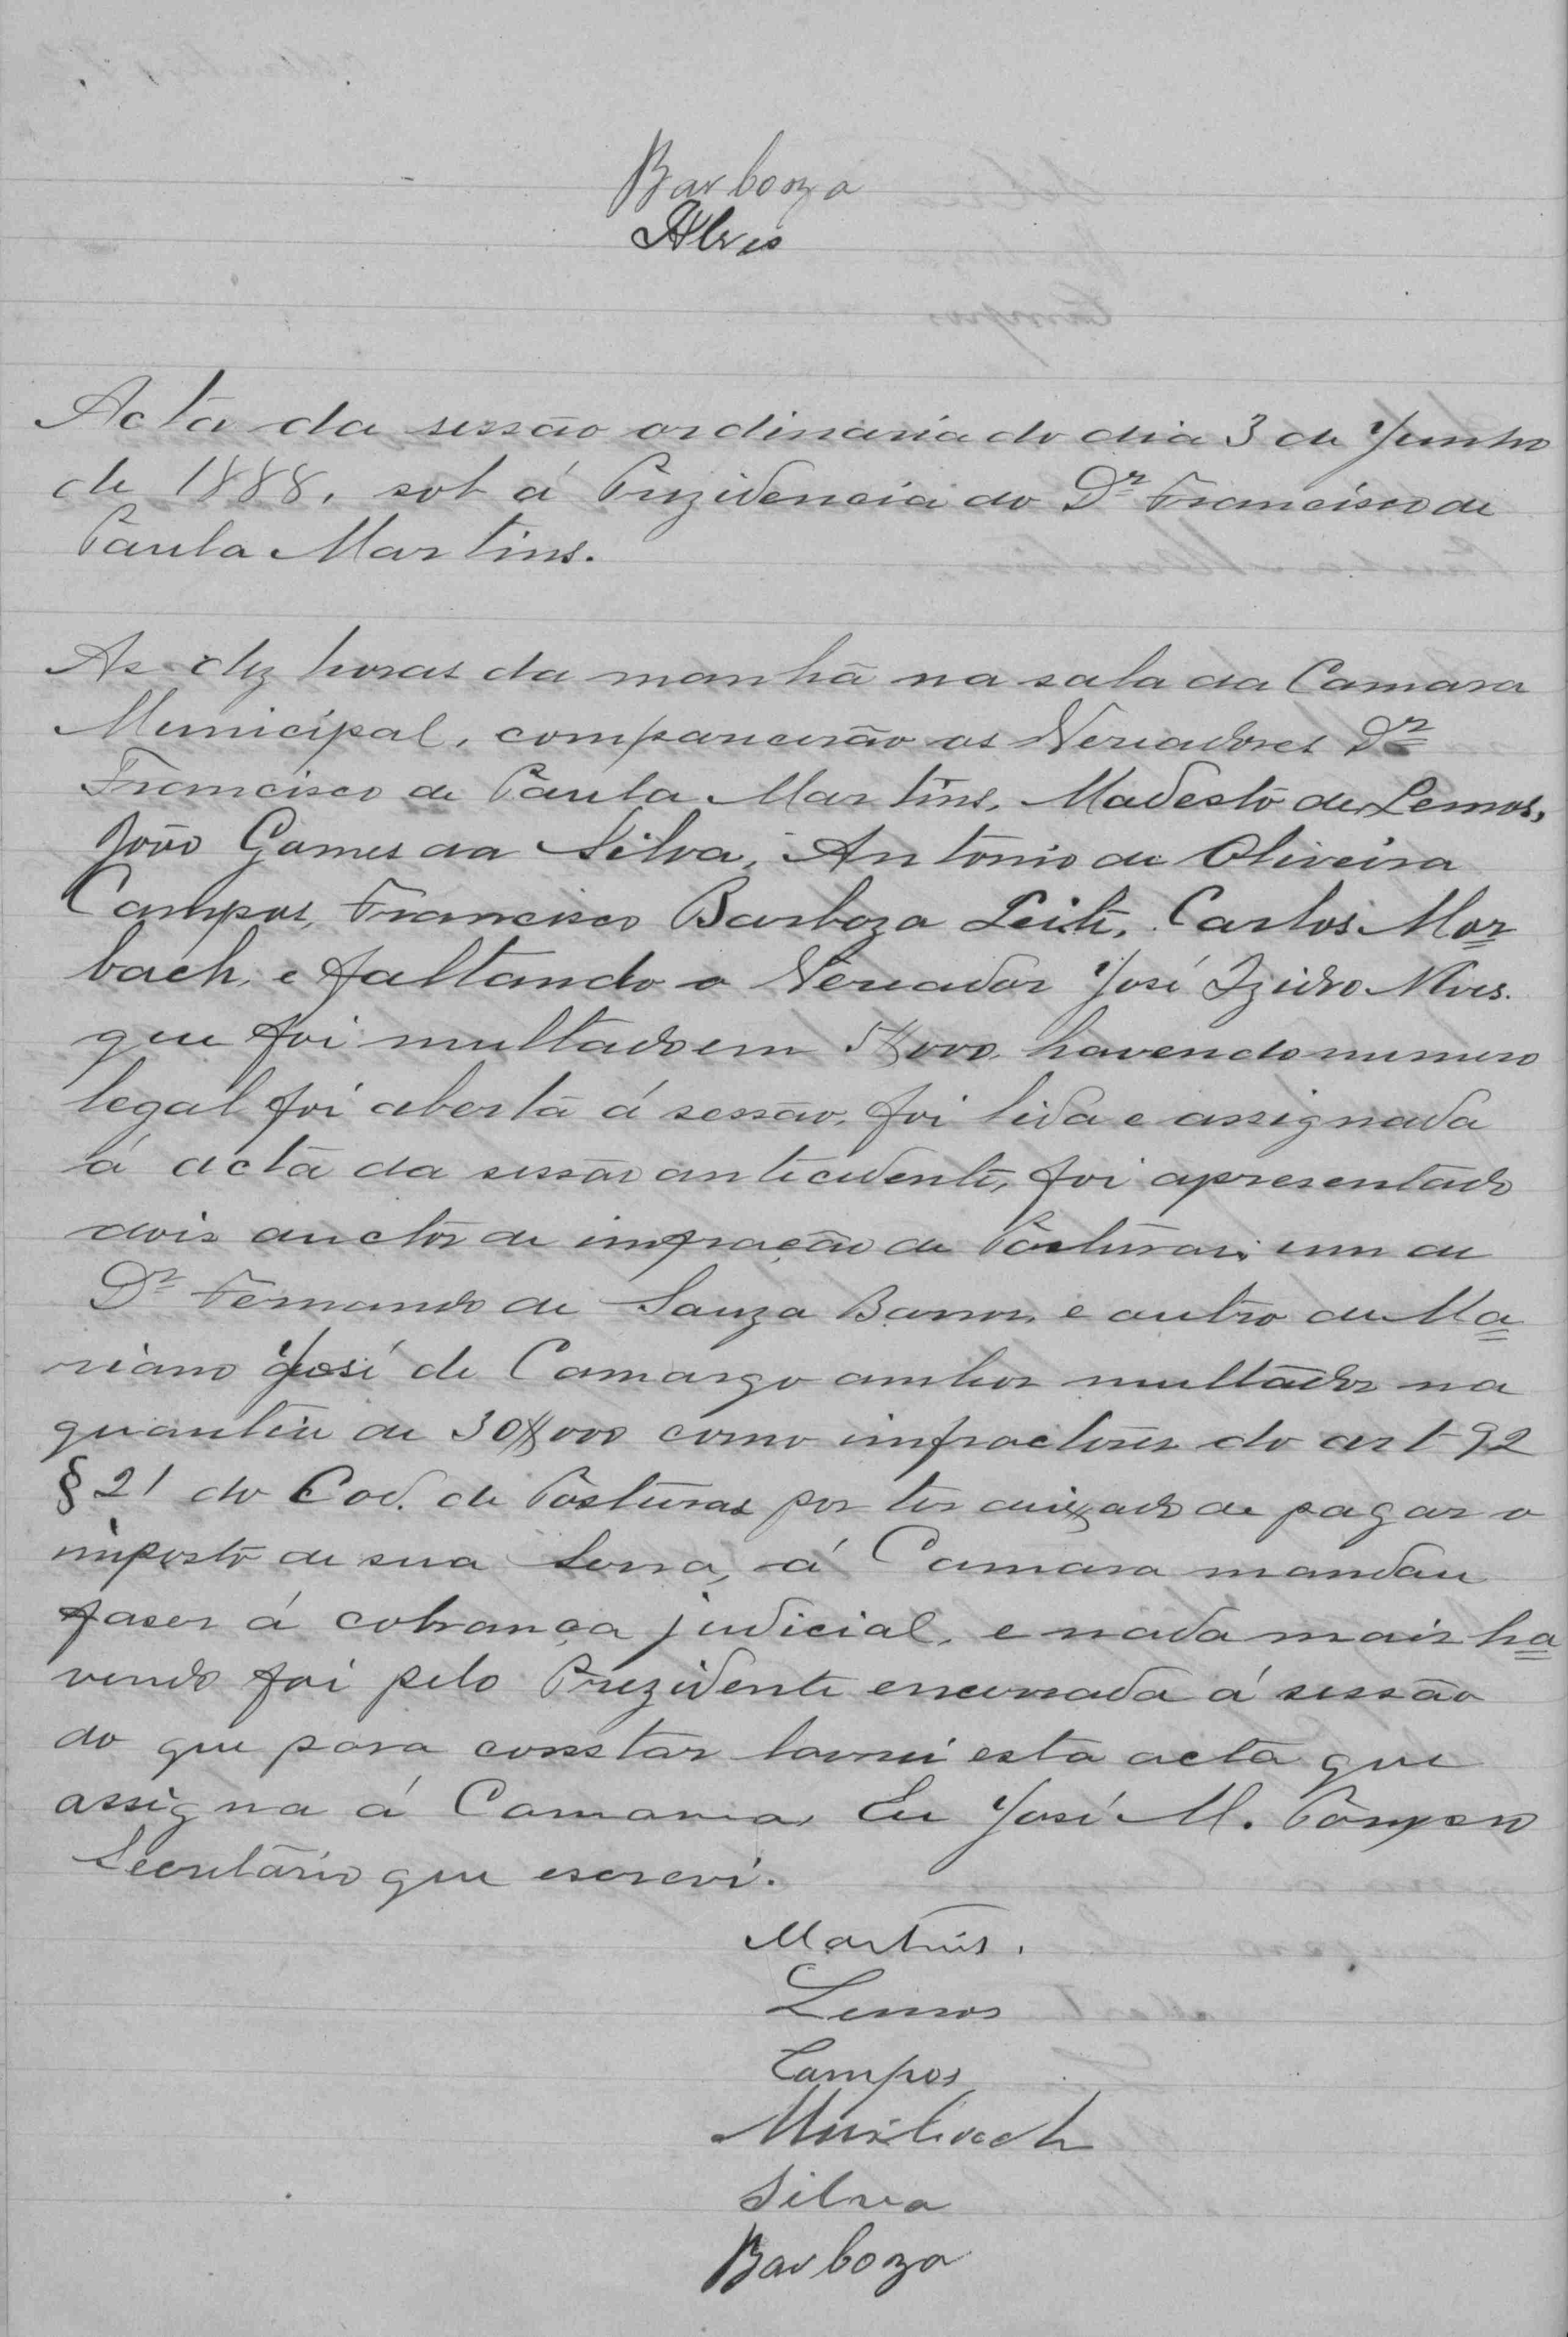 Barboza
Alves
Acta da sessão ordinaria do dia 3 de Junho
de 1888, sob á Prezidencia do Dr Francisco de
Paula Martins.
As dez horas da manhã na sala da Camara
Municipal, comparecerão os Vereadores Dr
Francisco de Paula Martins, Modesto de Lemos,
João Gomes da Silva, Antonio de Oliveira
Campos, Francisco Barboza Leite, Carlos Mor=
bach, e faltando o Vereador José Izidro Alves.
que foi multado em 5$000, havendo numero
legal foi aberta á sessão, foi lida e assignada
á acta da sessão antecedente, foi apresentado
dois auctos de imfração de Posturas, um de
Dr Fernando de Souza Barros, e outro de Ma=
riano José de Camargo ambos multados na
quantia de 30$000 como imfractores do art 92
§ 21 do Cod. de Posturas por ter deixado de pagar o
imposto de sua serra, á Camara mandou
faser á cobrança judicial, e nada mais ha=
vendo foi pelo Prezidente encerrada á sessão
do que para constar lavrei esta acta que
assigna á Camara, Eu José M. Pompeo
Secretario que escrevi.
Martins.
Lemos
Campos
Morbach
Silva
Barboza